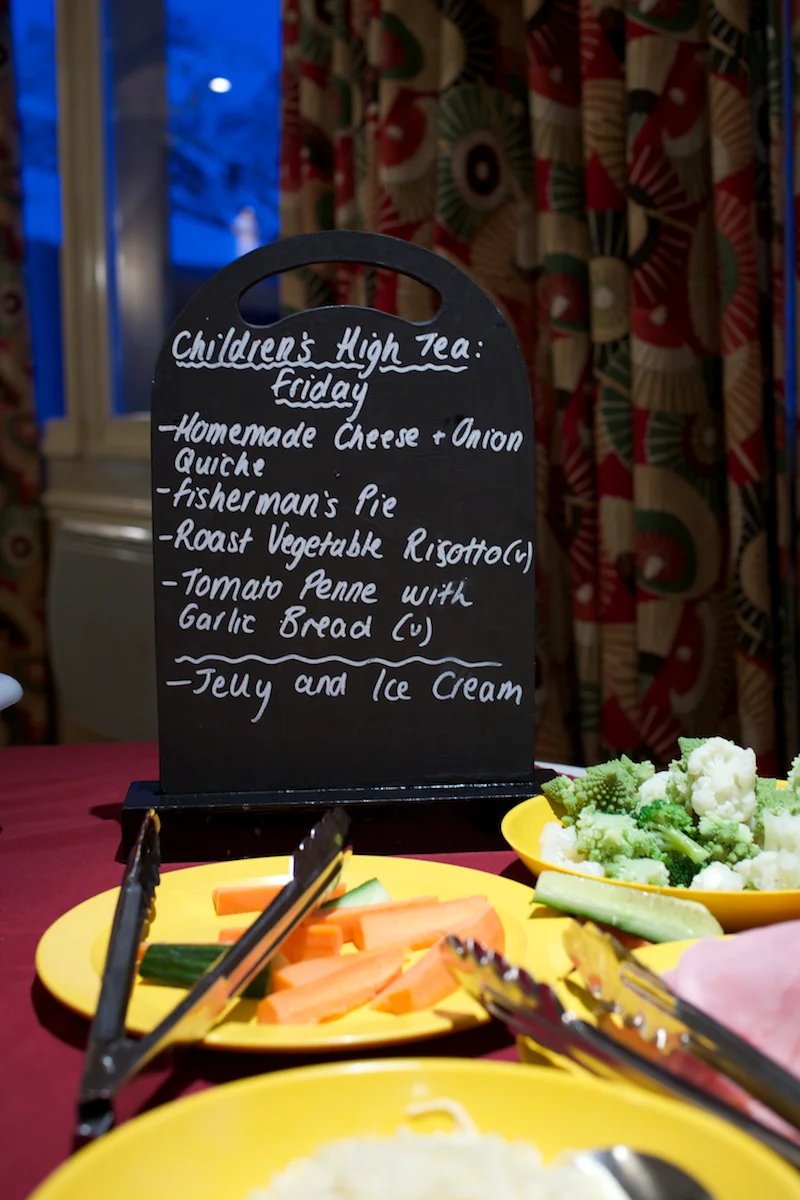 Children's High Tea:
Friday
-Homemade Cheese + Onion
Quiche
-Fisherman's Pie
-Roast Vegetable Risotto(v)
-Tomato Penne with
Garlic Bread (v)
-Jelly and Ice Cream